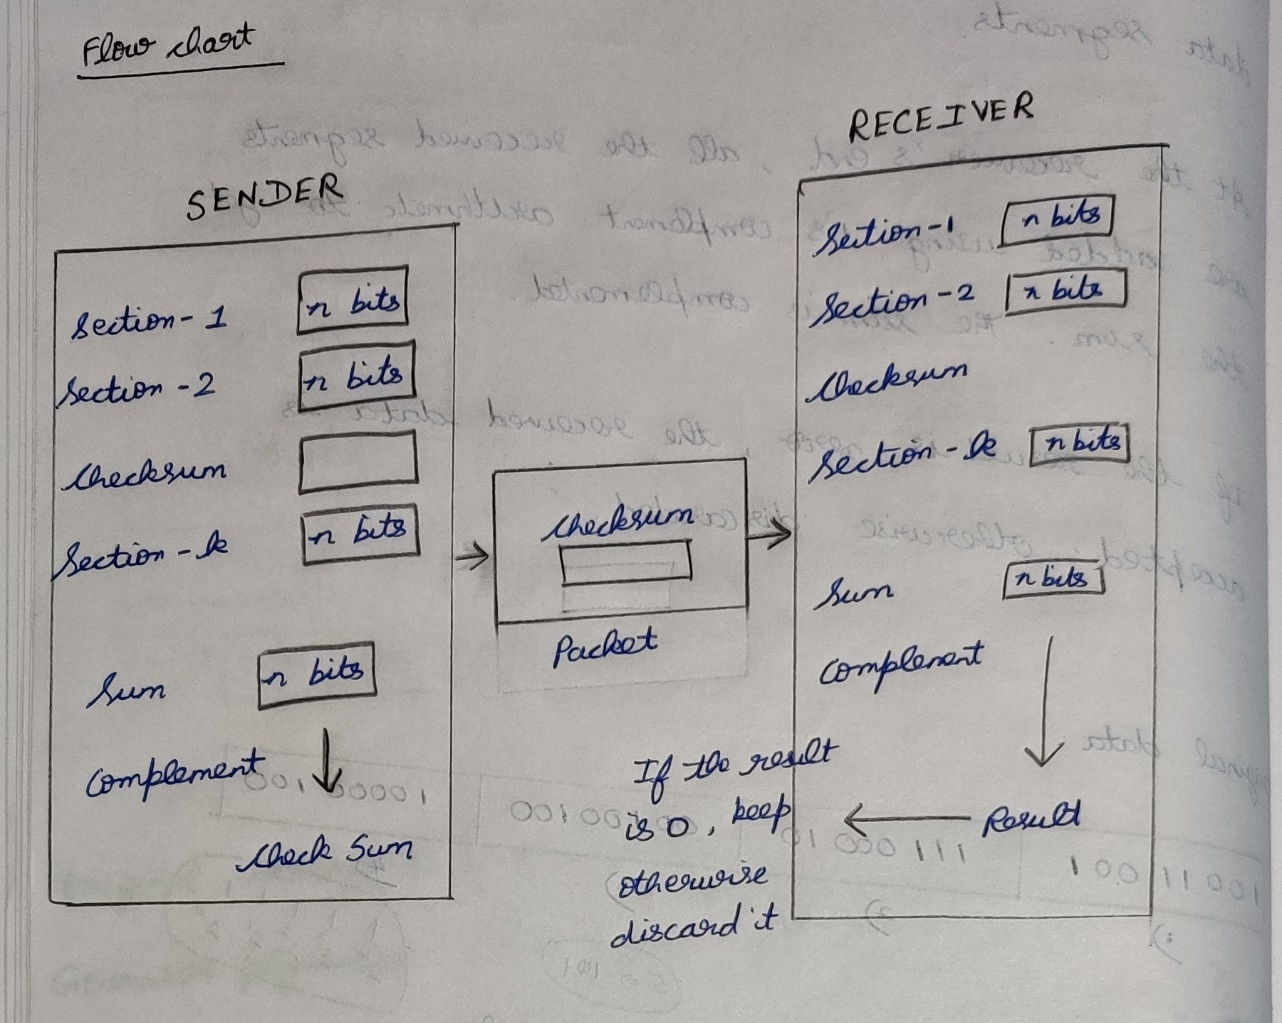 Flow chart
SENDER
Section-1 n bits
Section-2 n bits
Checksum
Section-k n bits
Sum n bits
Complement
Check Sum
Checksum
Packet
RECEIVER
Section-1 n bits
Section-2 n bits
Checksum
Section-k n bits
Sum n bits
Complement
Result
If the result
is 0, keep
otherwise
discard it